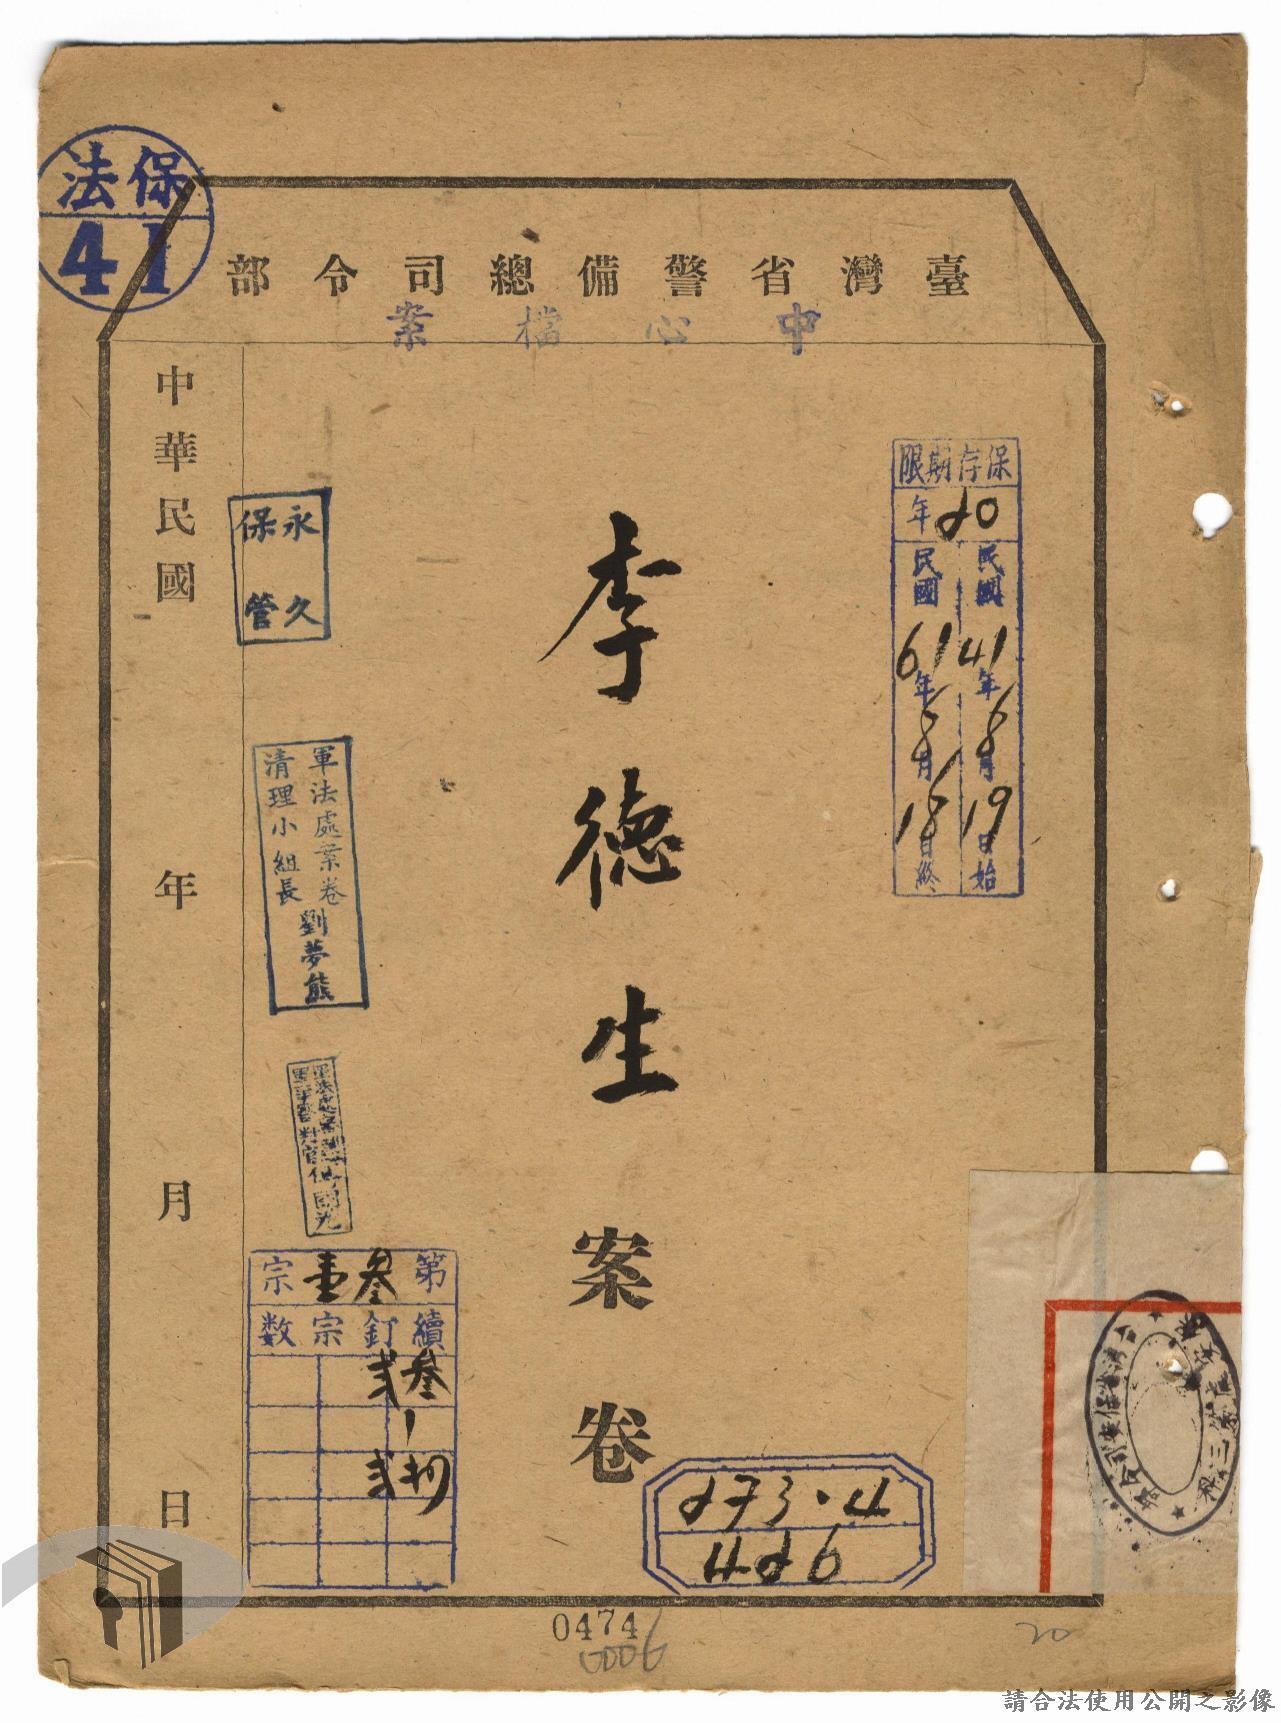 保法
41
臺灣省警備總司令部
中心檔案
保存期限
20年
民國41年6月19日始
民國61年6月18日終
李德生案卷
永久
保管
軍法處案卷
清理小組長劉夢熊
第叁壹宗
續釘宗数
叁
貳
中華民國 年 月 日
273.4
426
0474
0006
20
請合法使用公開之影像